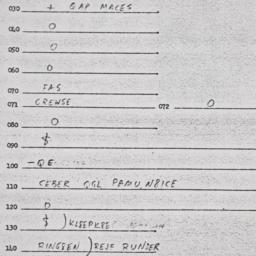 030 + GAP MACES
040 O
050 O
060 O
070 IAS
071 CREWSE 072 O
080 O
090 $
100 -QE
110 CEBER QGL PAMU,N8ICE
120 O
130 $ ) KLEEPKEE
140 RINGSEN ) REJE RUNSER